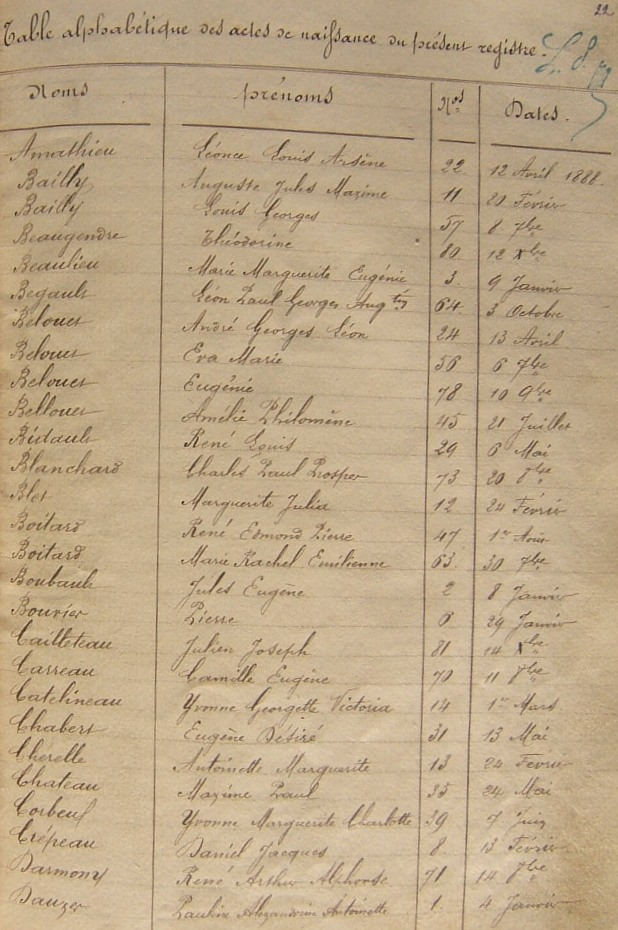 22
Table alphabétique des actes de naissance du présent registre.
Noms prénoms Nos Dates.
Amathieu Léonce Louis Arsène 22 12 Avril 1888
Bailly Auguste Jules Maxime 11 20 Février
Bailly Louis Georges 57 8 7bre
Beaugendre Théodorine 80 12 Xbre
Beaulieu Marie Marguerite Eugénie 3 9 Janvier
Begault Léon Paul Georges Augtin 64 3 Octobre
Belouet André Georges Léon 24 13 Avril
Belouet Eva Marie 56 6 7bre
Belouet Eugénie 78 10 9bre
Bellouet Amélie Philomène 45 21 Juillet
Bidault René Louis 29 6 Mai
Blanchard Charles Paul Prosper 73 20 8bre
Blet Marguerite Julia 12 24 Février
Boitard René Edmond Pierre 47 1er Août
Boitard Marie Rachel Emilienne 63 30 7bre
Boubault Jules Eugène 2 8 Janvier
Bouvier Pierre 6 29 Janvier
Cailleteau Julien Joseph 81 14 Xbre
Carreau Camille Eugène 70 11 8bre
Catelineau Yvonne Georgette Victoria 14 1er Mars
Chabert Eugène Désiré 31 13 Mai
Cherelle Antoinette Marguerite 13 24 Février
Chateau Maxime Paul 35 24 Mai
Corbeuf Yvonne Marguerite Charlotte 39 7 Juin
Crépeau Daniel Jacques 8 13 Février
Darmony René Arthur Alphonse 71 14 8bre
Dauzer Pauline Alexandrine Antoinette 1 4 Janvier